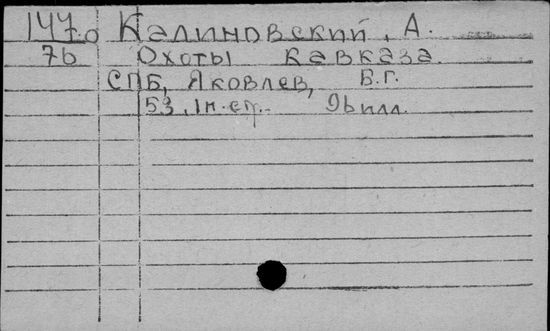 1470 Калиновский, А.
76 Охоты Кавказа.
СПБ, Яковлев, Б.Г.
53, 1н.ст. 9ь илл.